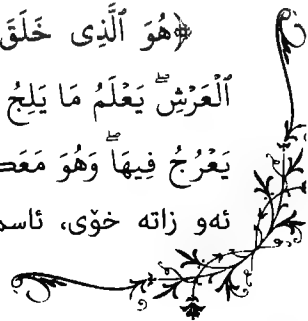 ﴿هُوَ ٱلَّذِى خَلَقَ
ٱلْعَرْشِ ۖ يَعْلَمُ مَا يَلِجُ
يَعْرُجُ فِيهَا ۖ وَهُوَ
ئەو زاتە خۆی،